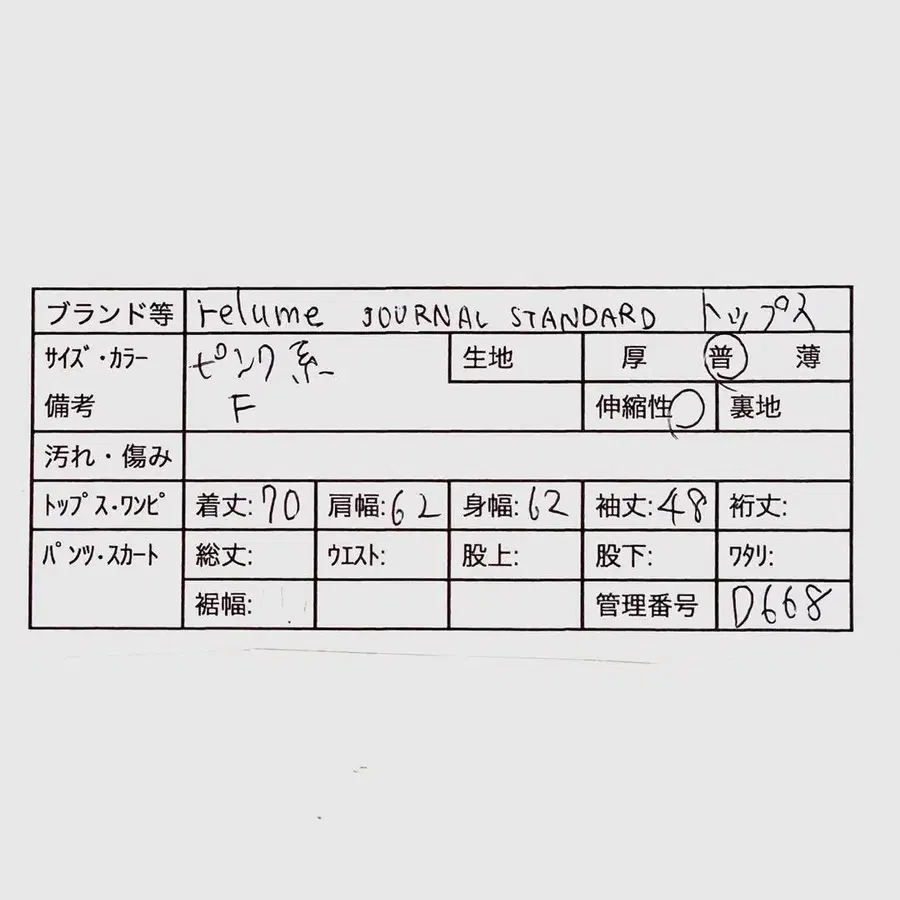 ブランド等 relume JOURNAL STANDARD トップス
サイズ・カラー ピンク系 生地 厚 普 薄
備考 F 伸縮性 裏地
汚れ・傷み
トップス・ワンピ 着丈:70 肩幅:62 身幅:62 袖丈:48 裄丈:
パンツ・スカート 総丈: ウエスト: 股上: 股下: ワタリ:
裾幅: 管理番号 D668